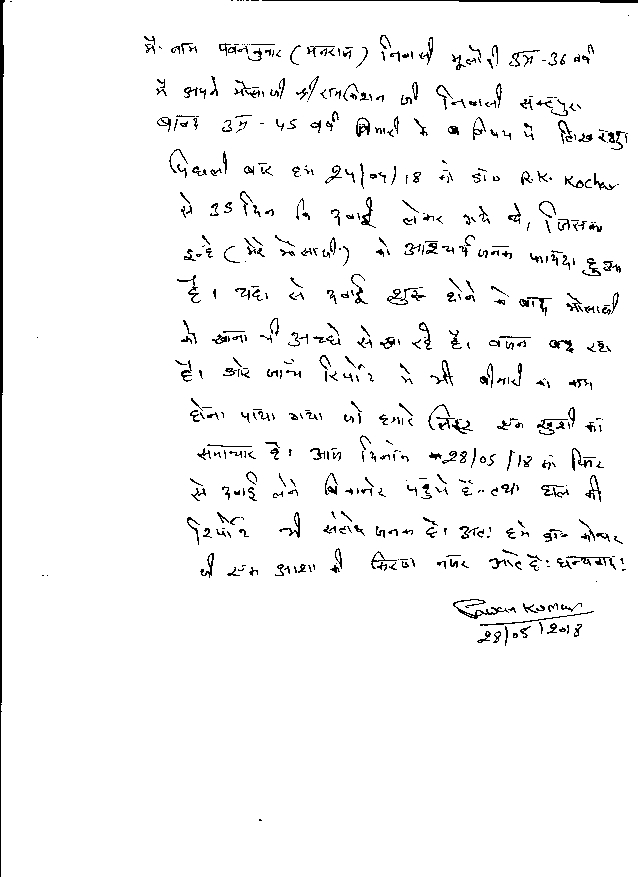 मै. नाम पवनकुमार (मनराज) निवासी मूलोदी उम्र-36 वर्ष
मै अपने मौसाजी श्री रामकिशन जी निवासी
उम्र-45 वर्ष बिमारी के विषय मे लिख रहा हु।
पिछली बार हम 24/04/18 को डॉ० R.K. Kochar
से 35 दिन कि दवाई लेकर गये थे, जिसका
इन्हे (मेरे मौसाजी) को आश्चर्यजनक फायदा हुआ
है। यहा से दवाई शुरू होने के बाद मौसाजी
को खाना भी अच्छे से खा रहे है। वजन बढ़ रहा
है। और जाँच रिपोर्ट मे भी बीमारी का कम
होना पाया गया जो हमारे लिए एक खुशी का
समाचार है। आज दिनांक 28/05/18 को फिर
से दवाई लेने बिकानेर पहुंचे है- तथा हाल की
रिपोर्ट भी संतोषजनक है। अतः हमे डॉ० कोचर
जी एक आशा की किरण नजर आते है। धन्यवाद!
Pawan Kumar
28/05/2018